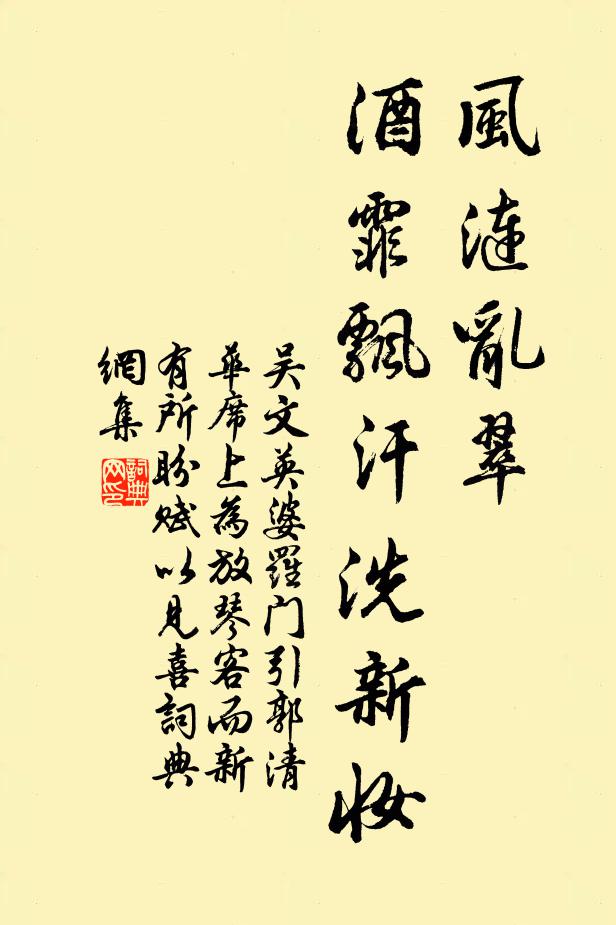 風漣亂翠
酒霏飄汗洗新妝
吴文英婆羅門引郭清
華席上為放琴客而新
有所盼赋以見喜詞典
網集
詞典
网印